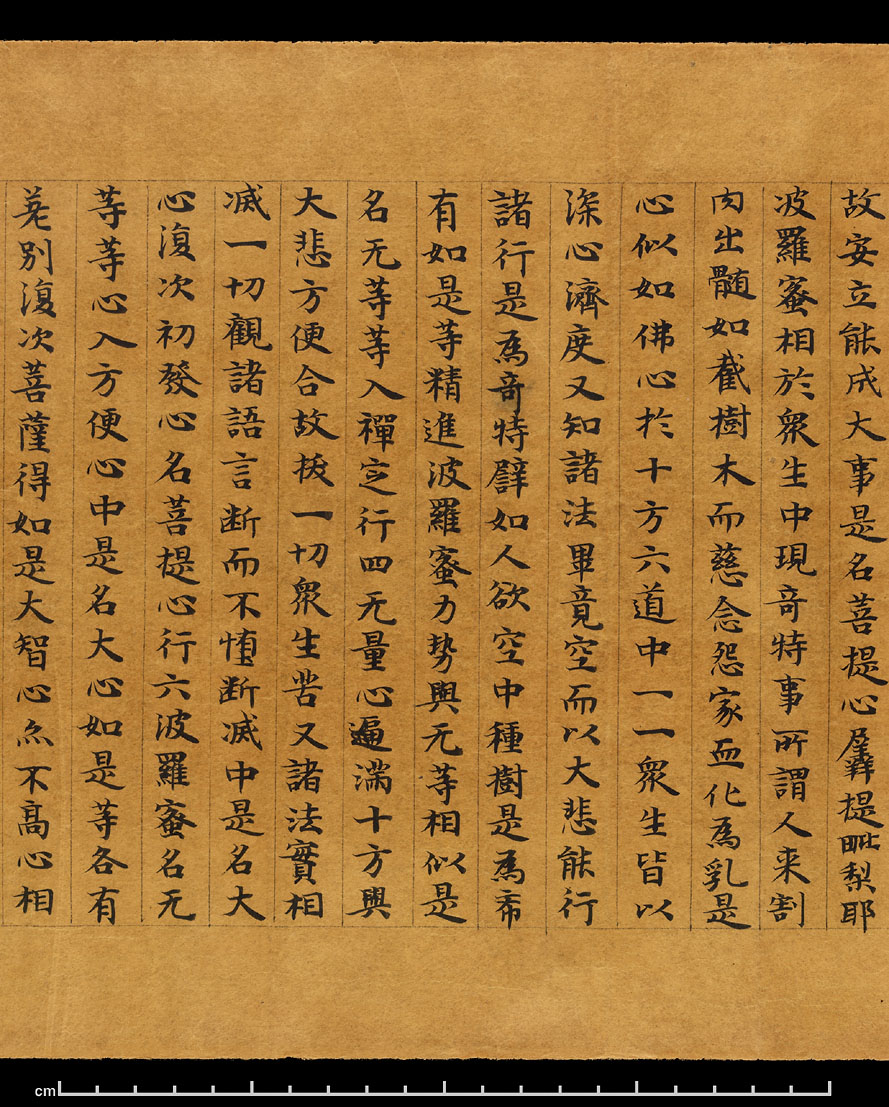 故安立能成大事是名菩提心羼提毗梨耶
波羅蜜相於衆生中現奇特事所謂人来割
肉出髓如截樹木而慈念怨家血化為乳是
心似如佛心於十方六道中一一衆生皆以
深心濟度又知諸法畢竟空而以大悲能行
諸行是為奇特譬如人欲空中種樹是為希
有如是等精進波羅蜜力勢與无等相似是
名无等等入禪定行四无量心遍滿十方與
大悲方便合故拔一切衆生苦又諸法實相
滅一切觀諸語言断而不墮断滅中是名大
心復次初發心名菩提心行六波羅蜜名无
等等心入方便心中是名大心如是等各有
差別復次菩薩得如是大智心亦不高心相
cm